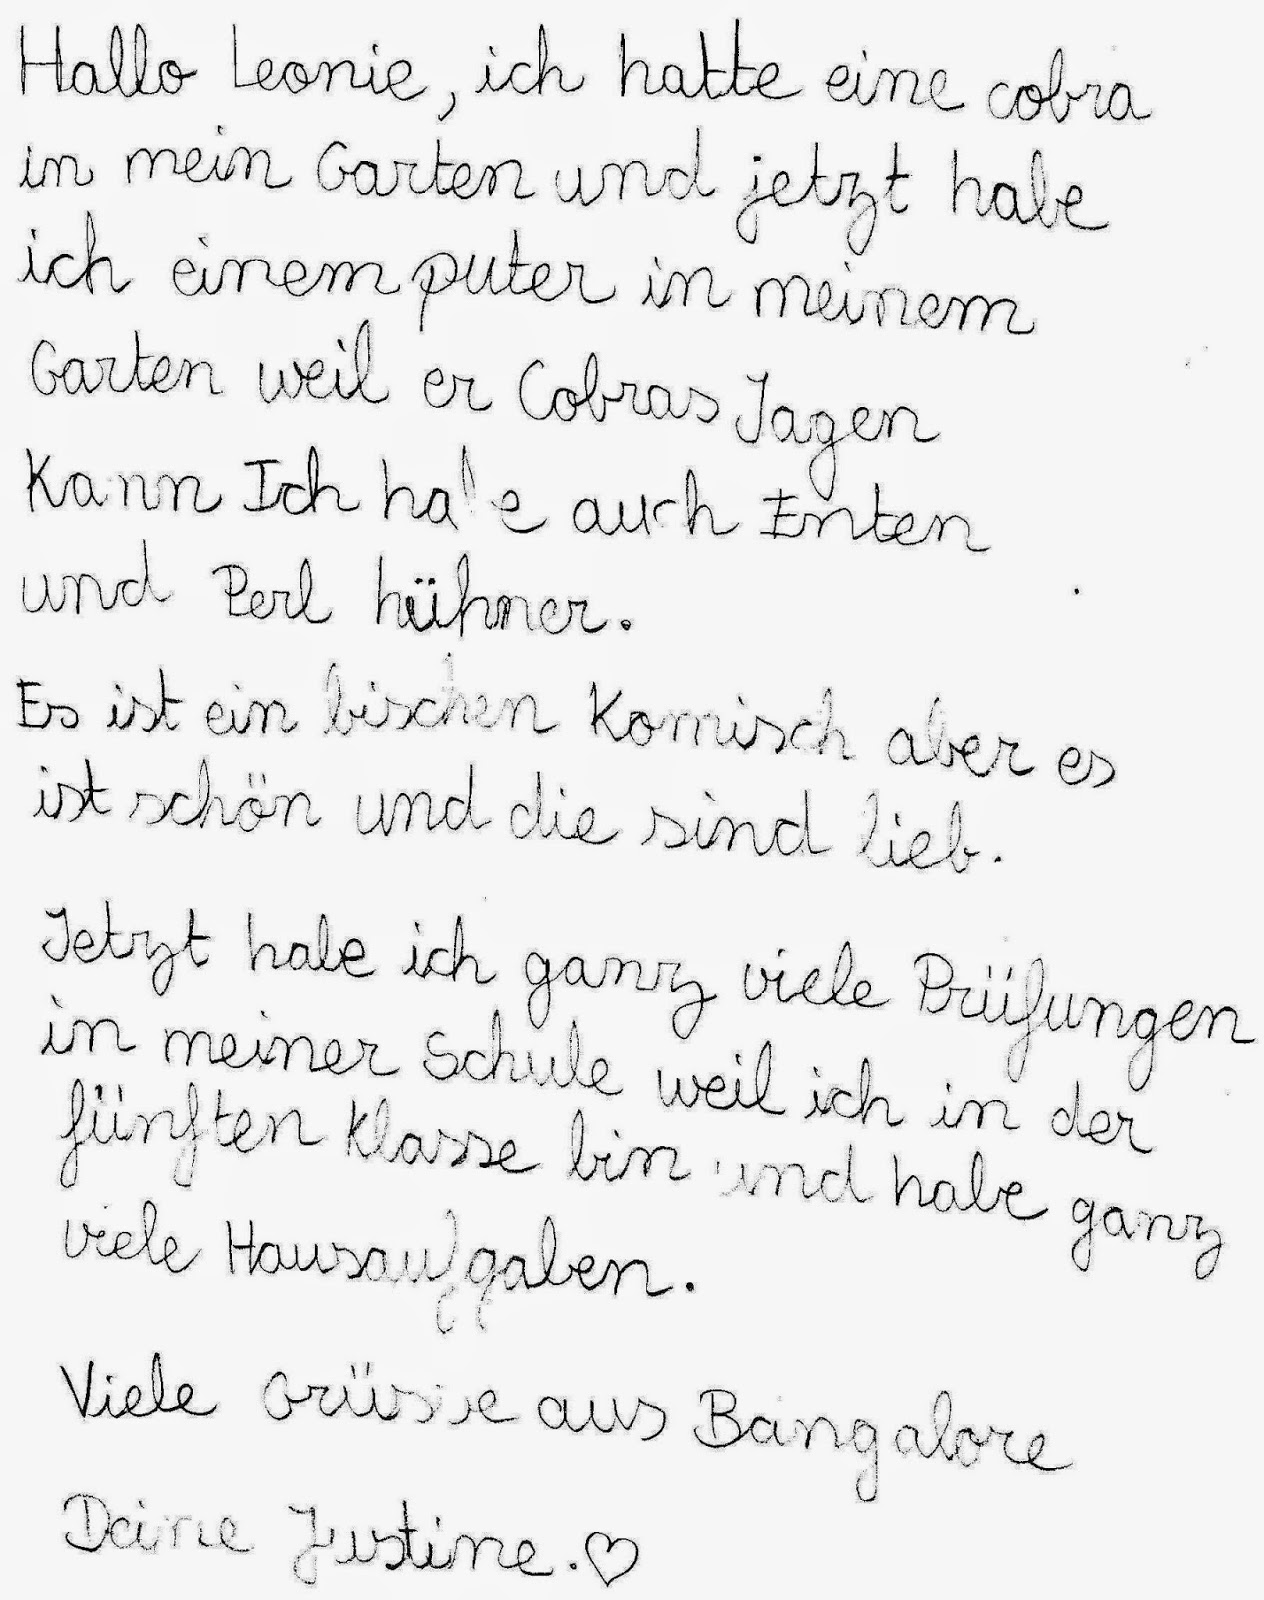 Hallo Leonie, ich hatte eine cobra
in mein Garten und jetzt habe
ich einem puter in meinem
Garten weil er Cobras Jagen
Kann Ich habe auch Enten
und Perl hühner.
Es ist ein bischen Komisch aber es
ist schön und die sind lieb.
Jetzt habe ich ganz viele Prüfungen
in meiner Schule weil ich in der
fünften Klasse bin und habe ganz
viele Hausaufgaben.
Viele Grüsse aus Bangalore
Deine Justine. ♡